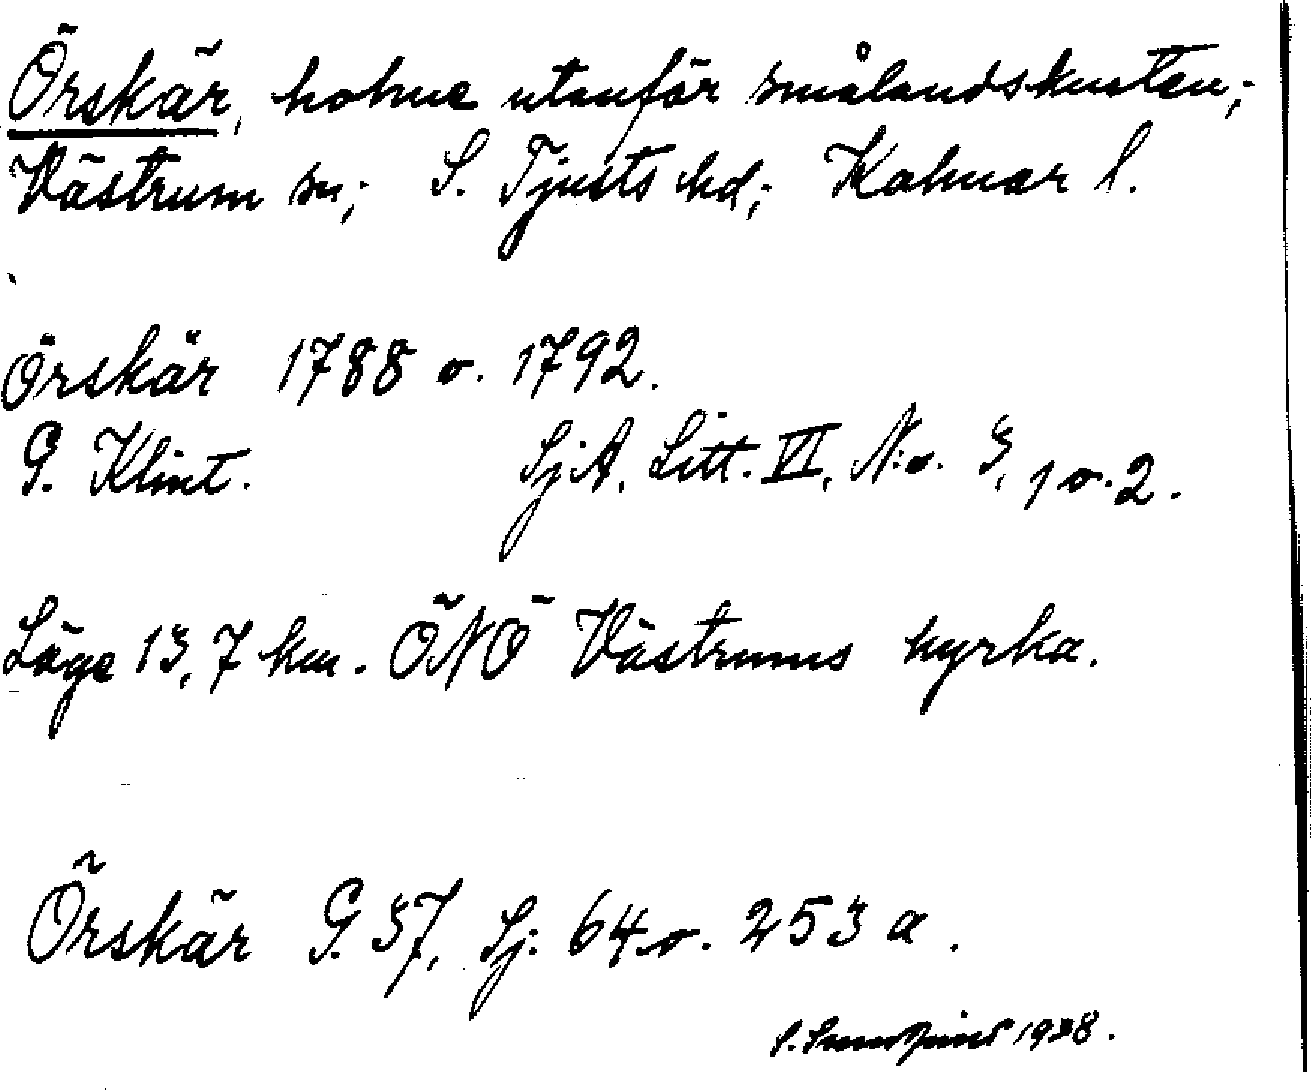 Örskär, holme utanför smålandskusten;
Västrum sn; S. Tjusts hd; Kalmar l.
Örskär 1788 o. 1792.
G. Klint. SjA, Litt. VI, N:o. 3, 1 o. 2.
Läge 13,7 km. ÖNÖ Västrums kyrka.
Örskär G. 37, Sj: 64 o. 253 a.
S. 1938.